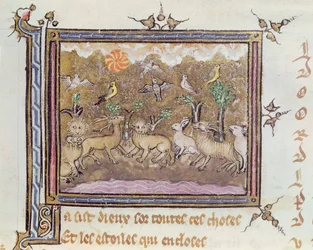 La fist dieux sor toutes ces choses
Et les estoiles qui encloses